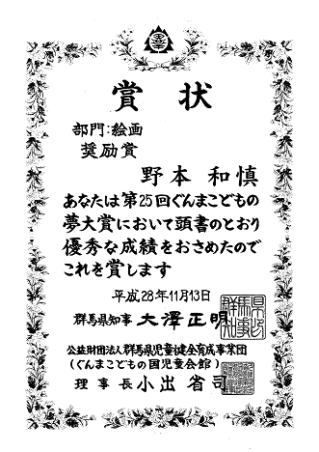 賞状
部門:絵画
奨励賞
野本 和慎
あなたは第25回ぐんまこどもの
夢大賞において頭書のとおり
優秀な成績をおさめたので
これを賞します
平成28年11月13日
群馬県知事 大澤正明
公益財団法人群馬県児童健全育成事業団
(ぐんまこどもの国児童会館)
理事長 小出 省司